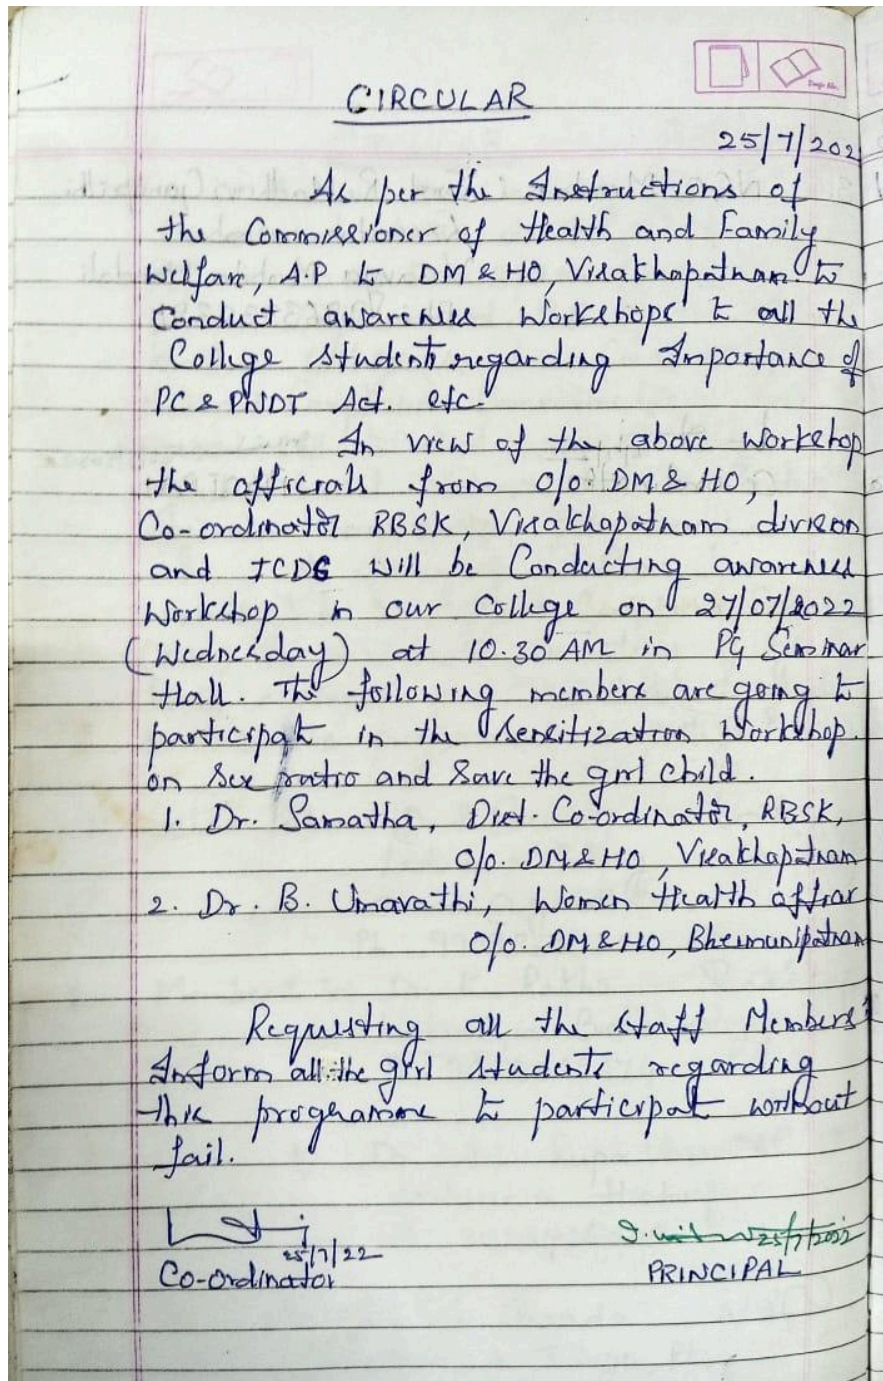 CIRCULAR
25/7/202
As per the Instructions of
the Commissioner of Health and Family
Welfare, A.P to DM & HO, Visakhapatnam to
Conduct awareness Workshops to all the
College students regarding Importance of
PC & PNDT Act. etc.
In view of the above workshop
the officials from O/o. DM & HO,
Co-ordinator RBSK, Visakhapatnam division
and ICDS will be Conducting awareness
Workshop in our College on 27/07/2022
(Wednesday) at 10.30 AM in PG Seminar
Hall. The following members are going to
participate in the Sensitization Workshop.
on Sex ratio and Save the girl child.
1. Dr. Samatha, Dist. Co-ordinator, RBSK,
O/o. DM & HO, Visakhapatnam
2. Dr. B. Umavathi, Women Health officer
O/o. DM & HO, Bheimunipatnam
Requesting all the staff Members
Inform all the girl students regarding
this programme to participate without
fail.
25/7/22
25/7/2022
Co-ordinator
PRINCIPAL